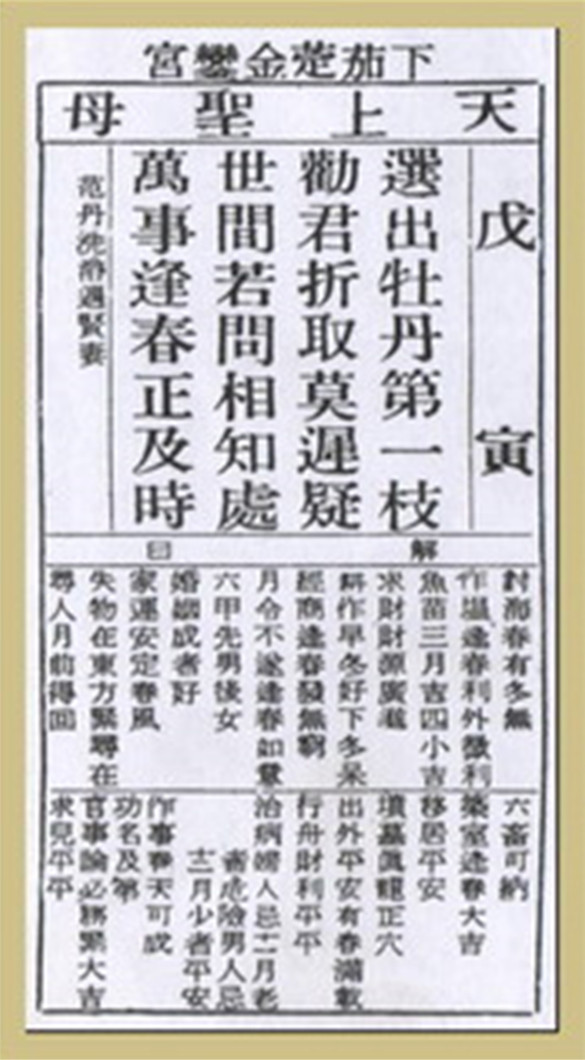 下茄萣金鑾宮
天上聖母
戊寅
選出牡丹第一枝
勸君折取莫遲疑
世間若問相知處
萬事逢春正及時
范丹洗浴遇賢妻
解曰
討海春有多無
作塭逢春利外微利
魚苗三月吉四小吉
求財財源廣進
耕作早冬好下冬呆
經商逢春發無窮
月令不遂逢春如意
六甲先男後女
婚姻成者好
家運安定春風
失物在東方緊尋在
尋人月前得回
六畜可納
築室逢春大吉
移居平安
墳墓真龍正穴
出外平安有春滿載
行舟財利平平
治病婦人忌十一月老
者危險男人忌
十二月少者平安
作事春天可成
功名及第
官事論必務緊大吉
求兒平平